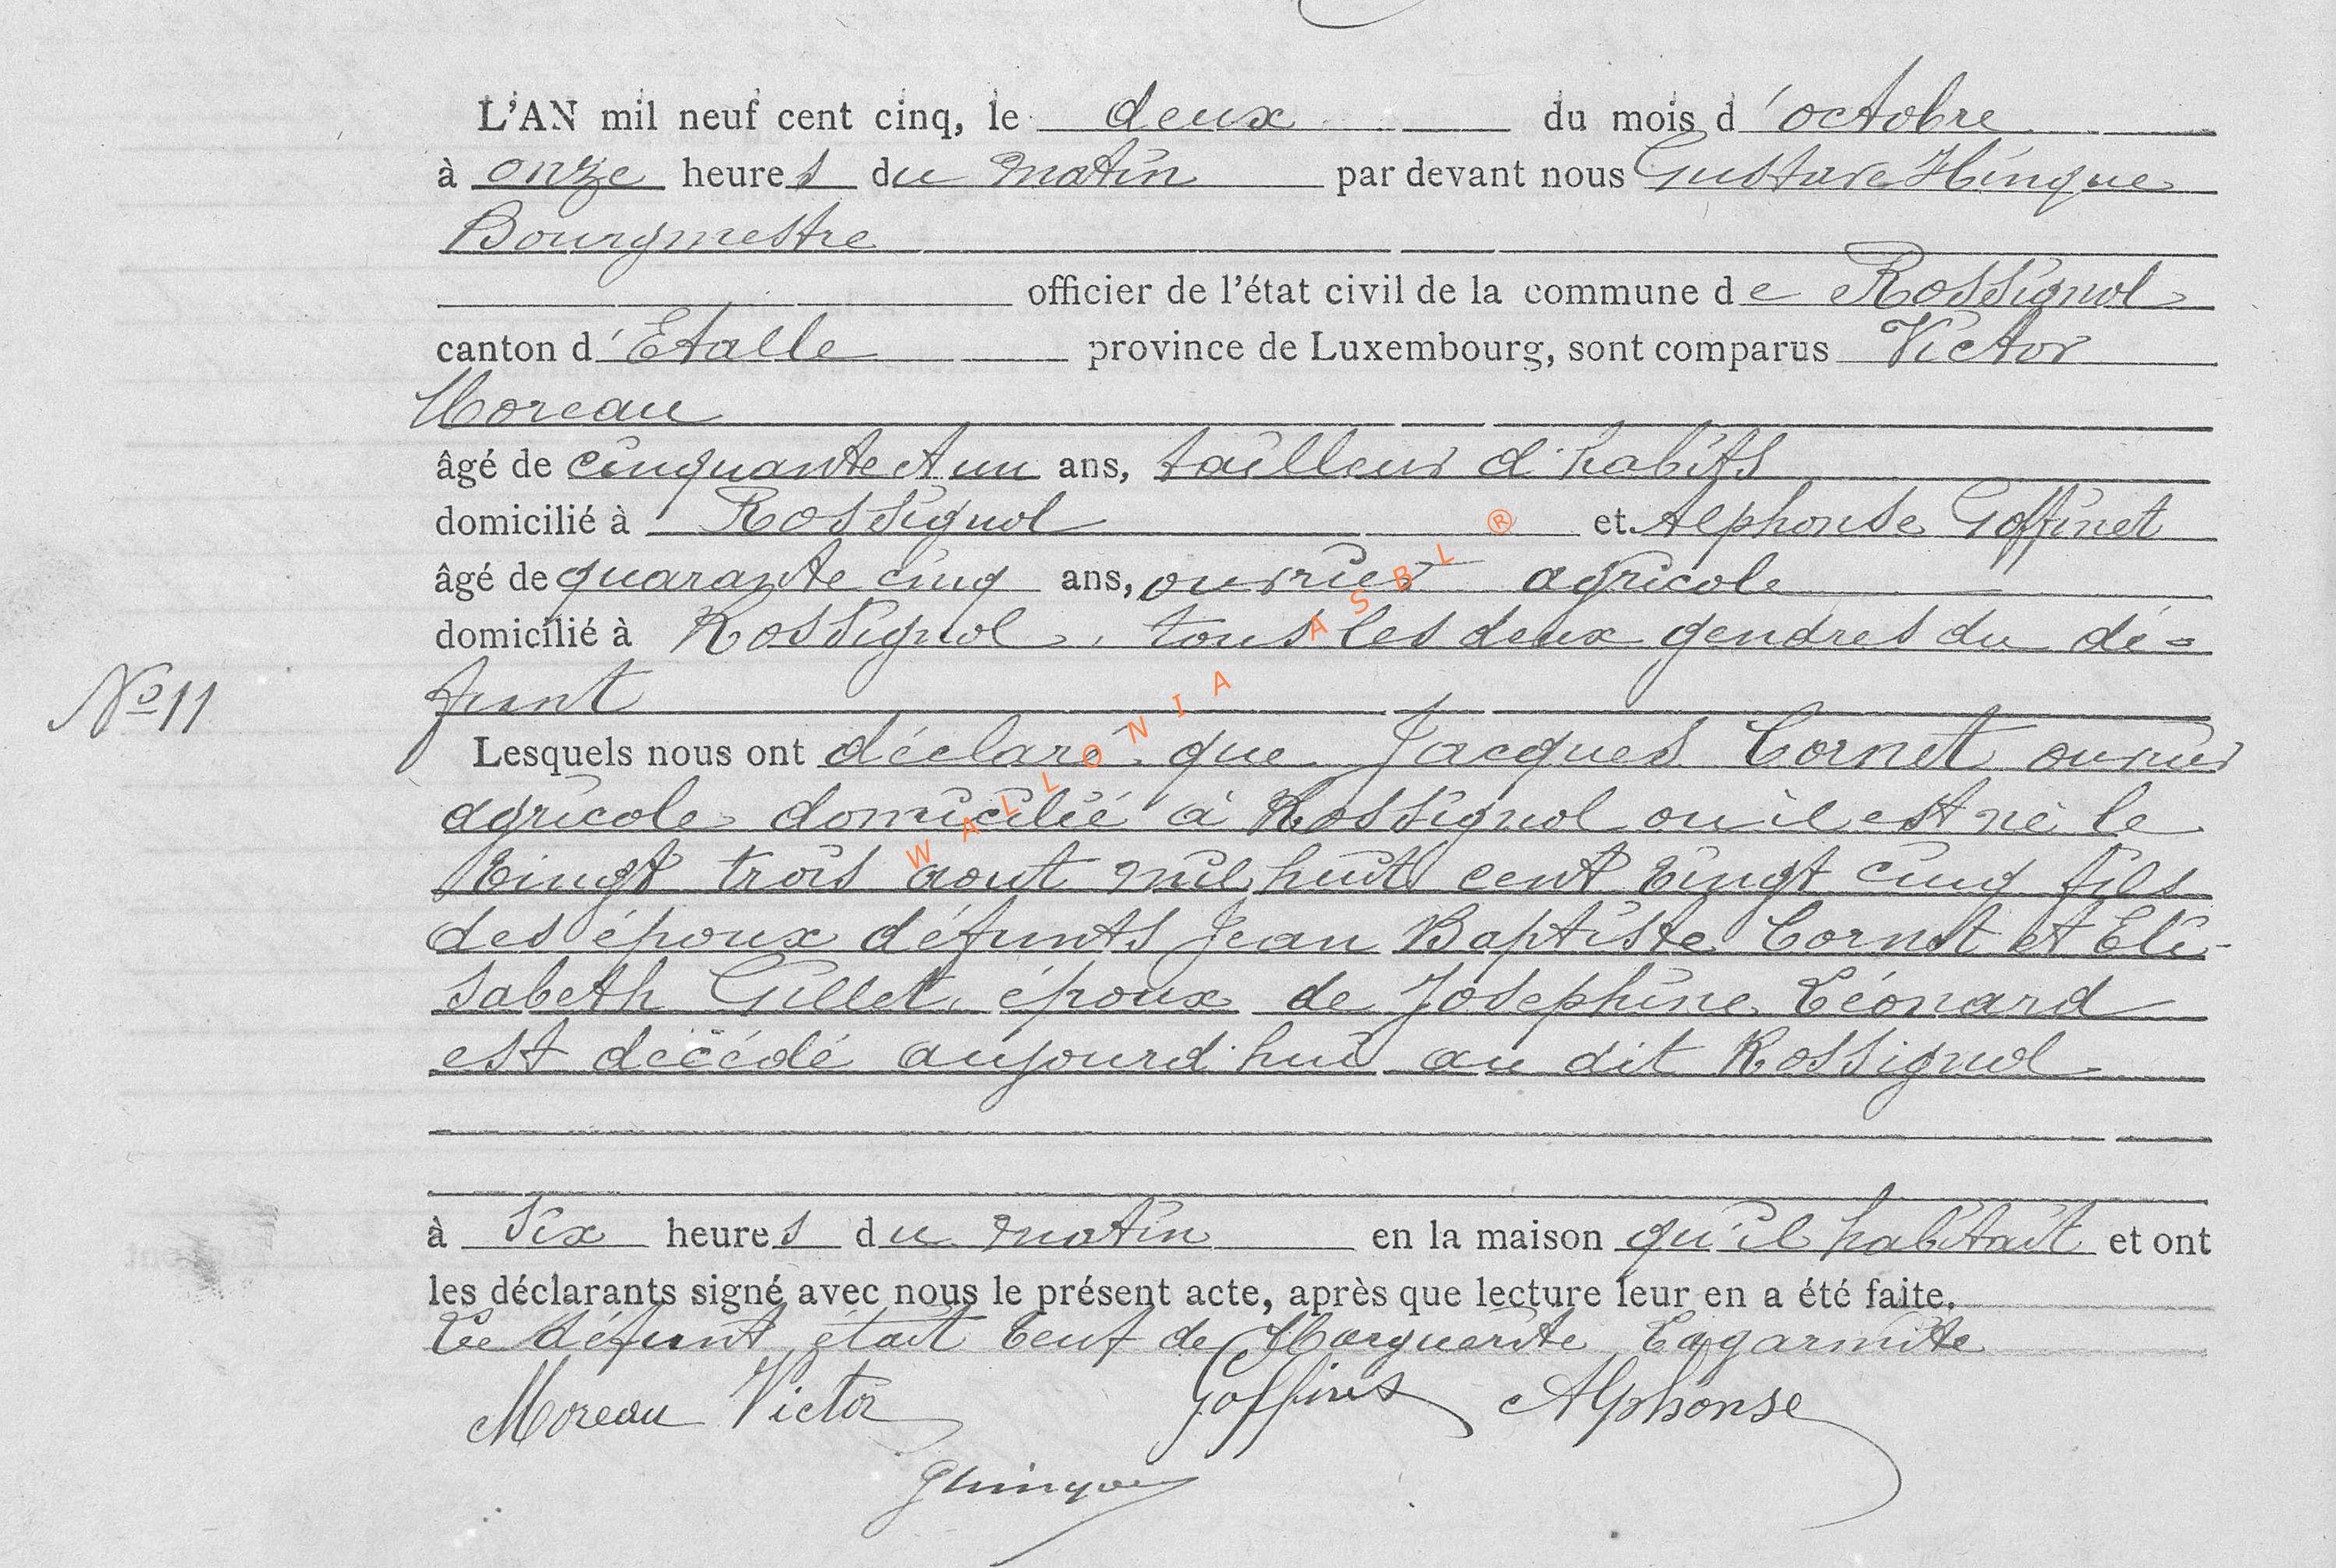 L'AN mil neuf cent cinq, le deux du mois d'octobre
à onze heures du matin par devant nous Gustave Hinque
Bourgmestre
officier de l'état civil de la commune de Rossignol
canton d'Etalle province de Luxembourg, sont comparus Victor
Moreau
âgé de cinquante et un ans, tailleur d'habits
domicilié à Rossignol et Alphonse Goffinet
âgé de quarante cinq ans, ouvrier agricole
domicilié à Rossignol, tous les deux gendres du dé=
funt
No 11
Lesquels nous ont déclaré que Jacques Cornet ouvrier
agricole domicilié à Rossignol où il est né le
vingt trois aout mil huit cent vingt cinq fils
des époux défunts Jean Baptiste Cornet et Eli-
sabeth Gillet, époux de Josephine Léonard
est décédé aujourd'hui au dit Rossignol
à six heures du matin en la maison qu'il habitait et ont
les déclarants signé avec nous le présent acte, après que lecture leur en a été faite.
Le défunt était veuf de Marguerite Lagarmite
Moreau Victor Goffinet Alphonse
GHinque
WALLONIA ASBL ®